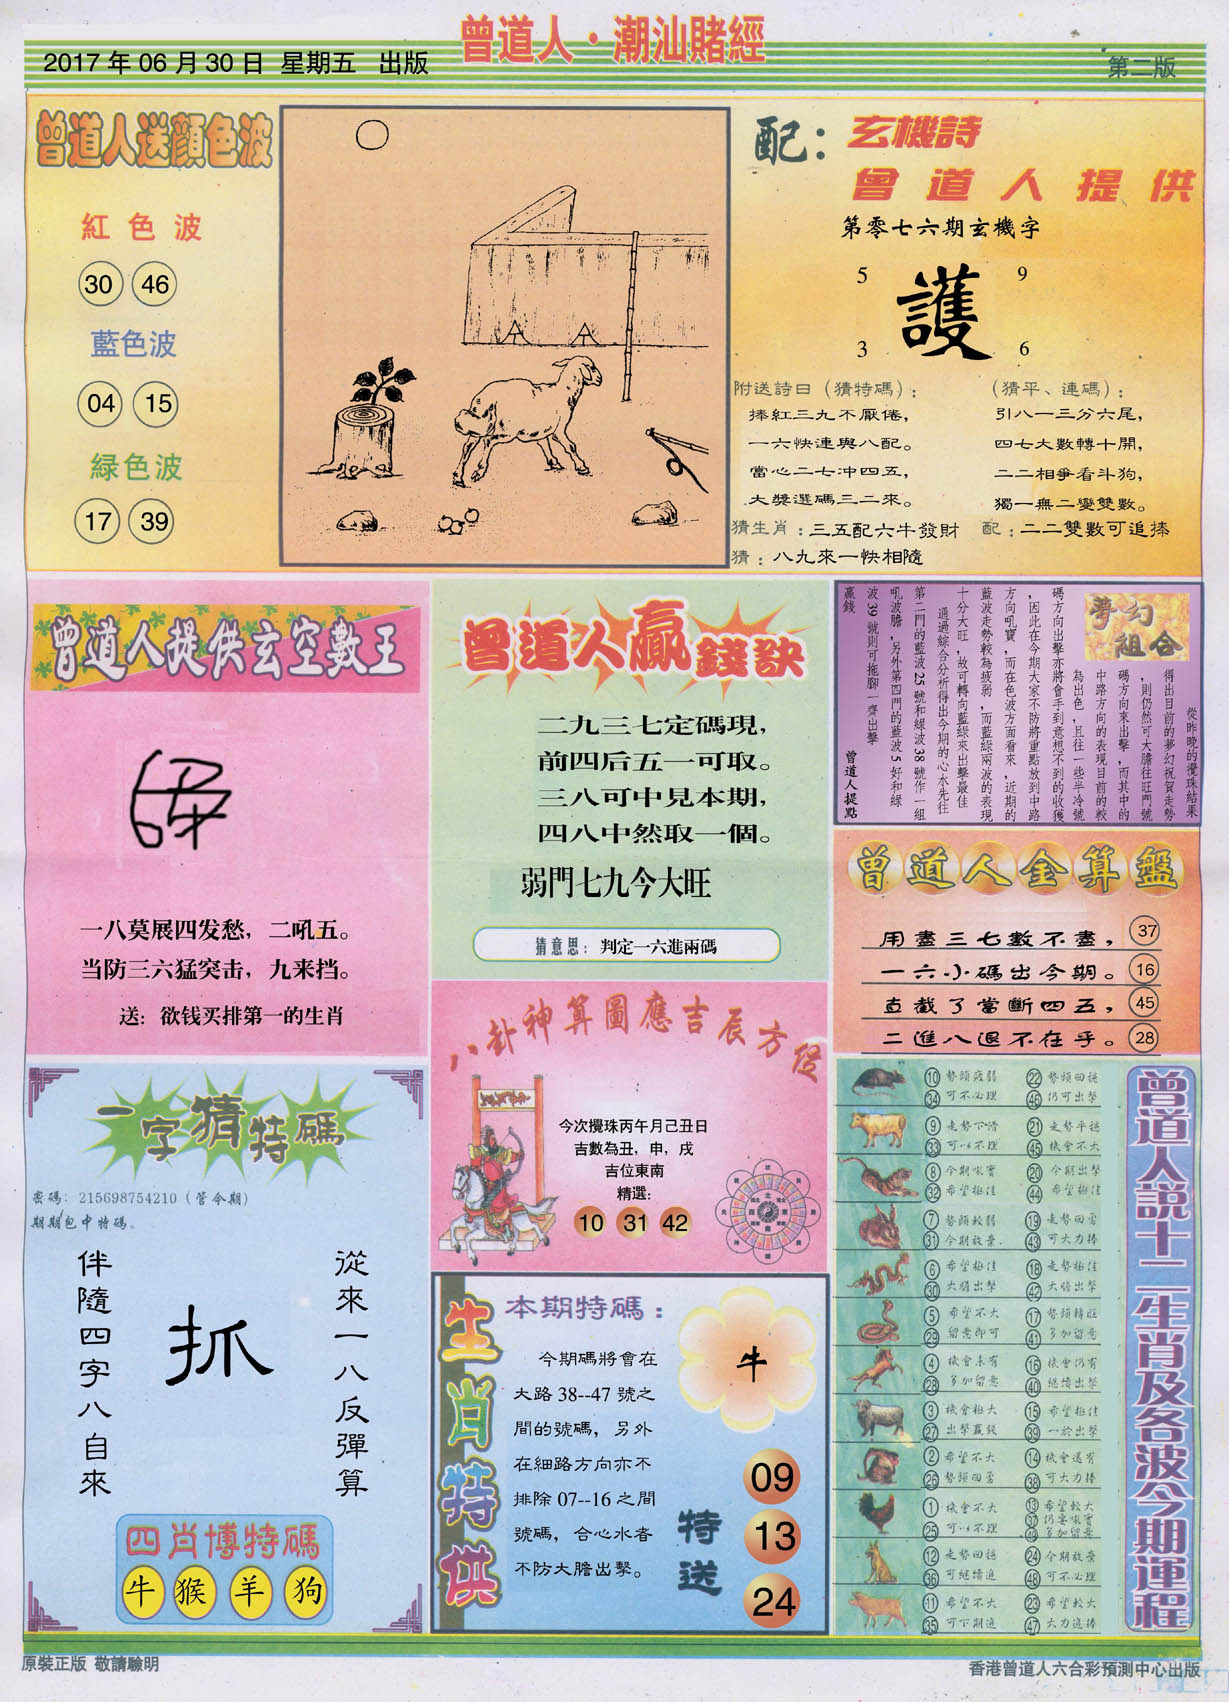 曾道人·潮汕賭經
2017年06月30日 星期五 出版
第二版
曾道人送顏色波
紅色波
30 46
藍色波
04 15
緑色波
17 39
配：
玄機詩
曾道人提供
第零七六期玄機字
5 9
護
3 6
附送詩曰（猜特碼）：
捧紅三九不厭倦，
一六快連與八配。
當心二七冲四五，
大獎選碼三二來。
（猜平、連碼）：
引八一三分六尾，
四七大數轉十開，
二二相爭看斗狗，
獨一無二變雙數。
猜生肖：三五配六牛發財
配：二二雙數可追捧
猜：八九來一快相隨
曾道人提供玄空數王
一八莫展四发愁，二吼五。
当防三六猛突击，九来挡。
送：欲钱买排第一的生肖
曾道人贏錢訣
二九三七定碼現，
前四后五一可取。
三八可中見本期，
四八中然取一個。
弱門七九今大旺
猜意思：判定一六進兩碼
夢幻
組合
從昨晚的攪珠結果
得出目前的夢幻祝賀走勢
，則仍然可大膽往旺門號
碼方向來出擊，而其中的
中路方向的表現目前的較
為出色，且往一些半冷號
碼方向出擊亦將會手到意想不到的收獲
，因此在今期大家不防將重點放到中路
方向吼寶，而在色波方面看來，近期的
藍波走勢較為疲弱，而藍綠兩波的表現
十分大旺，故可轉向藍綠來出擊最佳
通過綜合分析得出今期的心水先往
第二門的藍波25號和綠波38號作一組
吼波膽，另外第四門的藍波5好和綠
波39號則可拖腳一齊出擊
贏錢
曾道人提點
曾道人金算盤
用盡三七數不盡，37
一六小碼出今期。16
直截了當斷四五，45
二進八退不在乎。28
一字猜特碼
密碼：215698754210（管今期）
期期包中特碼。
從來一八反彈算
抓
伴隨四字八自來
四肖博特碼
牛 猴 羊 狗
八卦神算圖應吉辰方位
今次攪珠丙午月己丑日
吉數為丑，申，戌
吉位東南
精選：
10 31 42
生肖特供
本期特碼：
今期碼將會在
大路38--47號之
間的號碼，另外
在細路方向亦不
排除07--16之間
號碼，合心水者
不防大膽出擊。
牛
特送
09
13
24
曾道人説十二生肖及各波今期運程
10 勢頭疲弱 22 勢頭回穩
34 可不必理 46 仍可出擊
9 走勢下滑 21 走勢平穩
33 可以不理 45 機會不大
8 今期吼寶 20 今期出擊
32 希望極佳 44 希望極佳
7 勢頭較弱 19 走勢回勇
31 今期放棄 43 可大力捧
6 希望極佳 18 走勢極佳
30 大膽出擊 42 大膽出擊
5 希望不大 17 勢頭轉旺
29 留意即可 41 多加留意
4 機會未有 16 機會仍有
28 多加留意 40 繼續出擊
3 機會極大 15 希望極佳
27 出擊贏錢 39 一於出擊
2 希望不大 14 機會還有
26 勢頭回勇 38 可大力捧
1 機會不大 13 希望較大
37 仍要吼實
25 可以不理 49 多加留意
12 走勢回穩 24 今期放棄
36 可繼續追 48 可不必理
11 希望不大 23 希望較大
35 可下期追 47 大力追捧
原裝正版 敬請驗明
香港曾道人六合彩預測中心出版